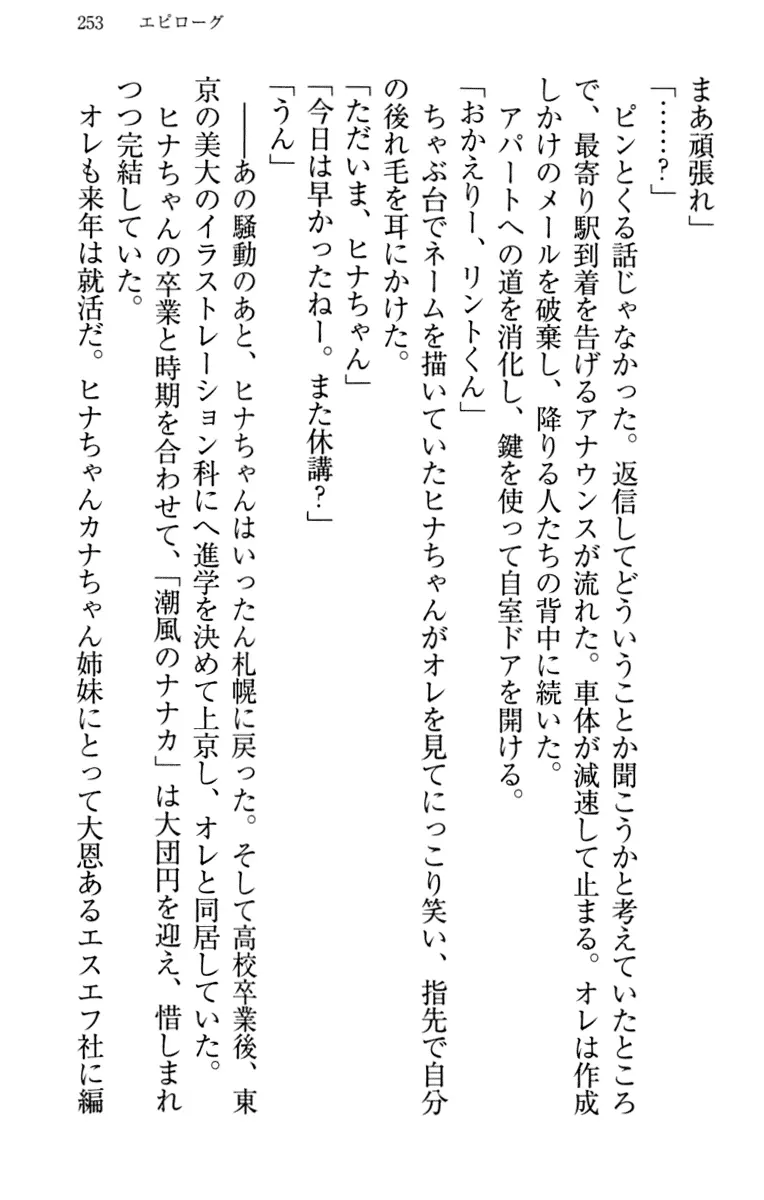 253 エピローグ
まあ頑張れ」
「……？」
ピンとくる話じゃなかった。返信してどういうことか聞こうかと考えていたところ
で、最寄り駅到着を告げるアナウンスが流れた。車体が減速して止まる。オレは作成
しかけのメールを破棄し、降りる人たちの背中に続いた。
アパートへの道を消化し、鍵を使って自室ドアを開ける。
「おかえりー、リントくん」
ちゃぶ台でネームを描いていたヒナちゃんがオレを見てにっこり笑い、指先で自分
の後れ毛を耳にかけた。
「ただいま、ヒナちゃん」
「今日は早かったねー。また休講？」
「うん」
――あの騒動のあと、ヒナちゃんはいったん札幌に戻った。そして高校卒業後、東
京の美大のイラストレーション科にへ進学を決めて上京し、オレと同居していた。
ヒナちゃんの卒業と時期を合わせて、「潮風のナナカ」は大団円を迎え、惜しまれ
つつ完結していた。
オレも来年は就活だ。ヒナちゃんカナちゃん姉妹にとって大恩あるエスエフ社に編